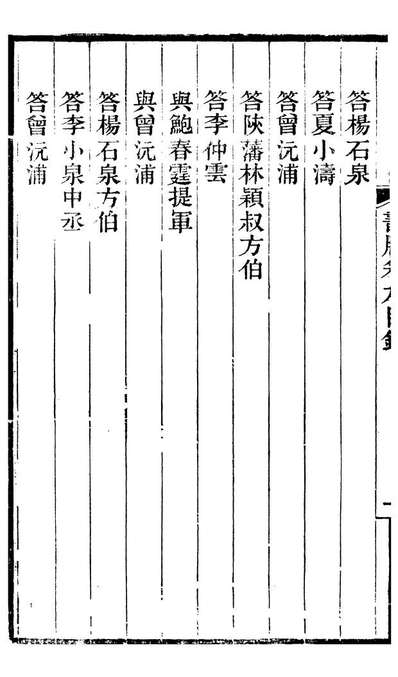 答楊石泉
答夏小濤
答曾沅浦
答陝藩林穎叔方伯
答李仲雲
與鮑春霆提軍
與曾沅浦
答楊石泉方伯
答李小泉中丞
答曾沅浦